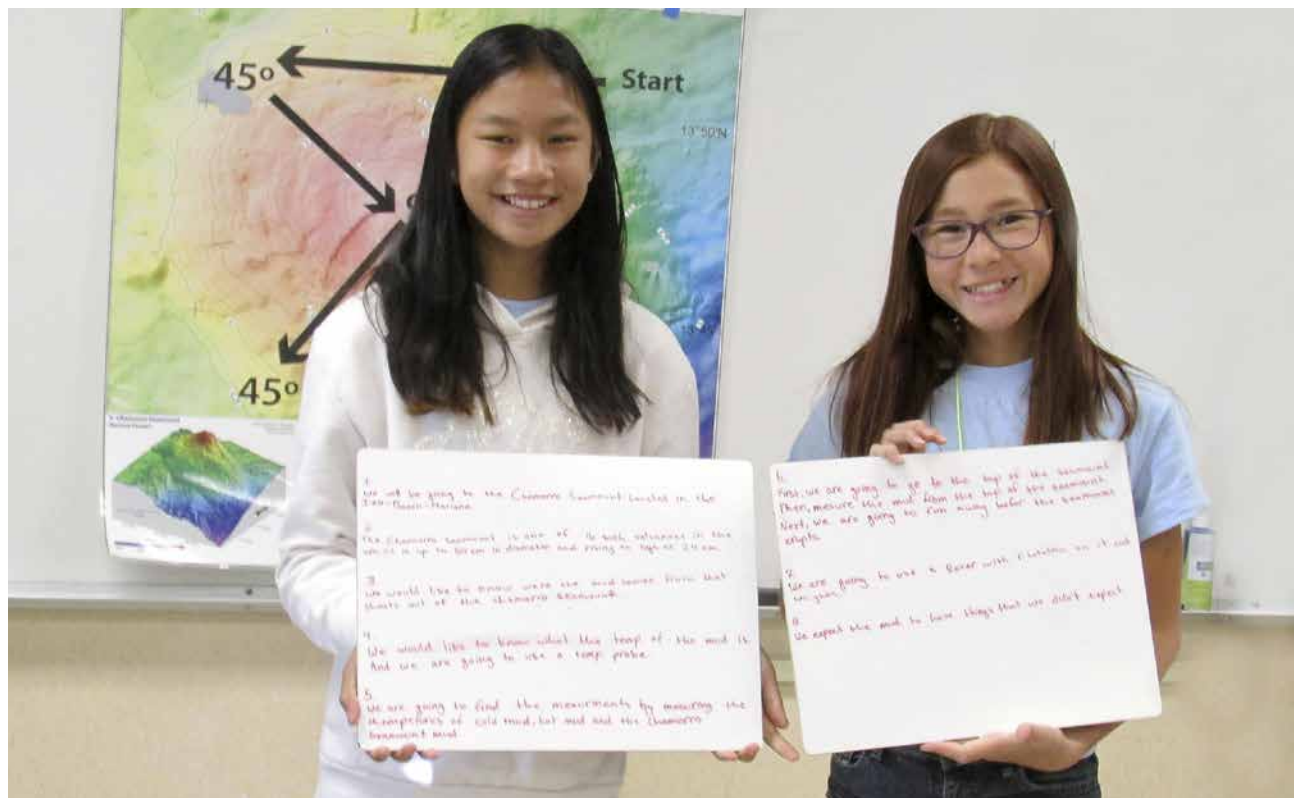 45°
Start
13°50'N
45°
1.
We will be going to the Chamorro Seamount located in the
2.
The Chamorro seamount is one of 16 such volcanoes in the
up to 50 km in diameter and rising as high as 2.4 km.
3
We would like to know were the mud comes from that
shoots out of the chamorro seamount.
4
We would like to know what the temp of the mud is.
And we are going to use a temp probe.
5
We are going to find the mesurments by mesuring the
of cold mud, hot mud and the Chamorro
Seamount mud.
First, we are going to go to the top of the seamount
Then, mesure the mud from the top of the seamount.
Next, we are going to run away befor the seamount
erupts.
We are going to use a Rover with on it and
We expect the mud to have things that we didn't expect